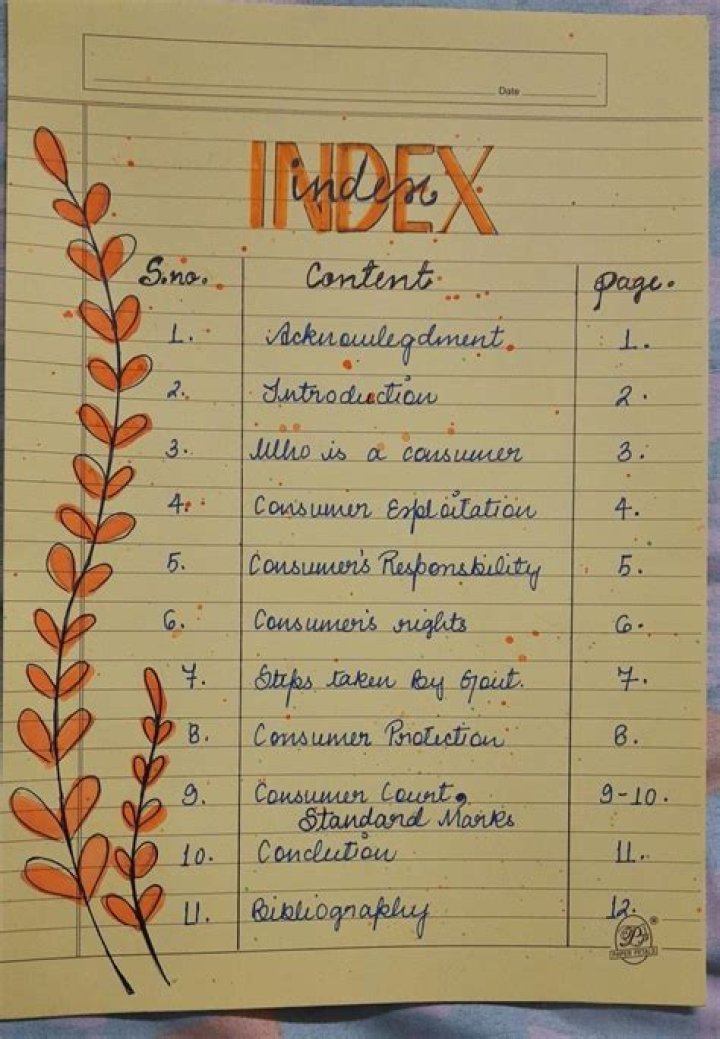 Date
INDEX
index
S.no. Content page.
1. Acknowlegdment. 1.
2. Introduction 2.
3. Who is a consumer 3.
4. Consumer Exploitation 4.
5. Consumer's Responsbility 5.
6. Consumer's rights 6.
7. Steps taken by Govt. 7.
8. Consumer Protection 8.
9. Consumer Court, 9-10.
Standard Marks
10. Conclution 11.
11. Bibliography 12.
PP
PAPER PETALS